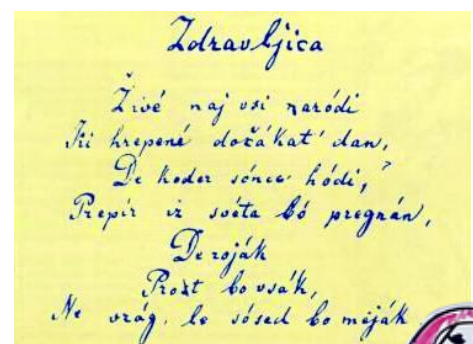 Zdravljica
Živé naj vsi naródi
Ki hrepené dočákat' dan,
De koder sónce hódi,
Prepír iz svéta bó pregnán,
De roják
Prost bo vsák,
Ne vrág, le sósed bo meják